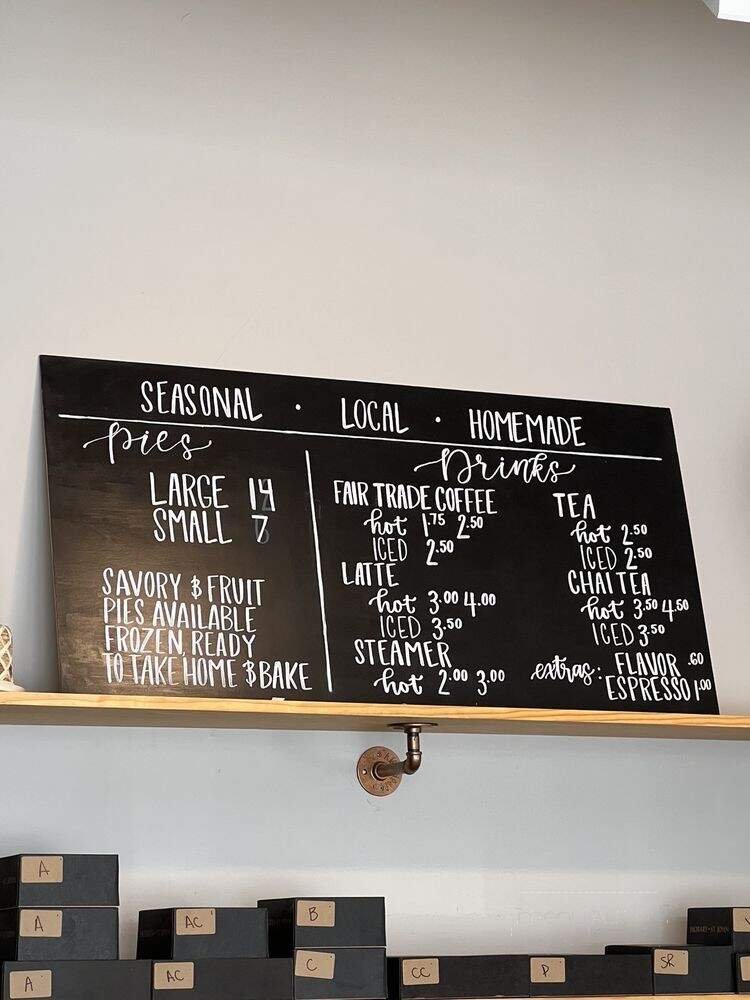 SEASONAL · LOCAL · HOMEMADE
Pies
LARGE 14
SMALL 7
SAVORY & FRUIT
PIES AVAILABLE
FROZEN, READY
TO TAKE HOME & BAKE
Drinks
FAIR TRADE COFFEE
hot 1.75 2.50
ICED 2.50
LATTE
hot 3.00 4.00
ICED 3.50
STEAMER
hot 2.00 3.00
TEA
hot 2.50
ICED 2.50
CHAI TEA
hot 3.50 4.50
ICED 3.50
extras: FLAVOR .60
ESPRESSO 1.00
A
A
AC
B
A
AC
C
CC
P
SR